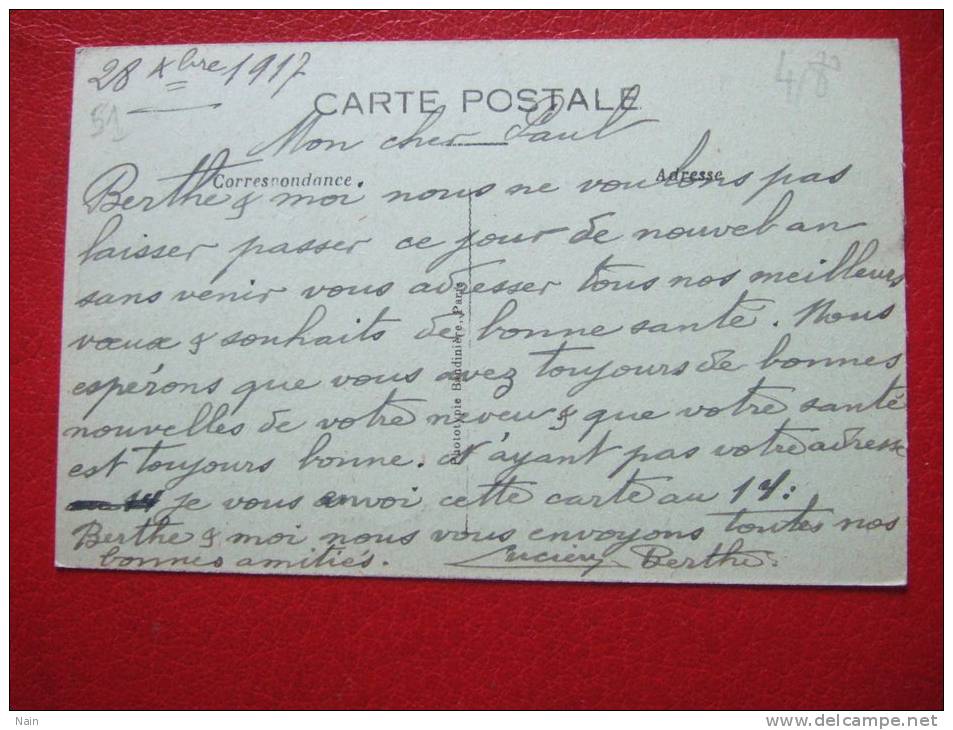 28 Xbre 1917
51
CARTE POSTALE
Mon cher Paul
Correspondance.
Adresse
Berthe & moi nous ne voulons pas
laisser passer ce jour de nouvel an
sans venir vous adresser tous nos meilleurs
vœux & souhaits de bonne santé. Nous
espérons que vous avez toujours de bonnes
nouvelles de votre neveu & que votre santé
est toujours bonne. N'ayant pas votre adresse
je vous envoi cette carte au 14:
Berthe & moi nous vous envoyons toutes nos
bonnes amitiés. Lucien Berthe.
Phototypie Baudinière, Paris
Nain
www.delcampe.net